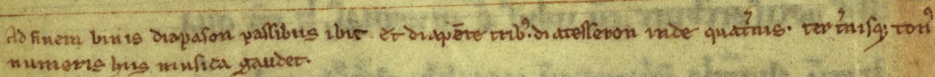 Ad finem binis diapason passibus ibit et diapēte trib᷒. diatesseron inde quat͛nis. ter t͛nisq; ton᷒
numeris hus musica gaudet.